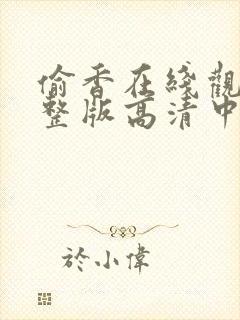 偷香在綫觀
整版高清中
於小偉